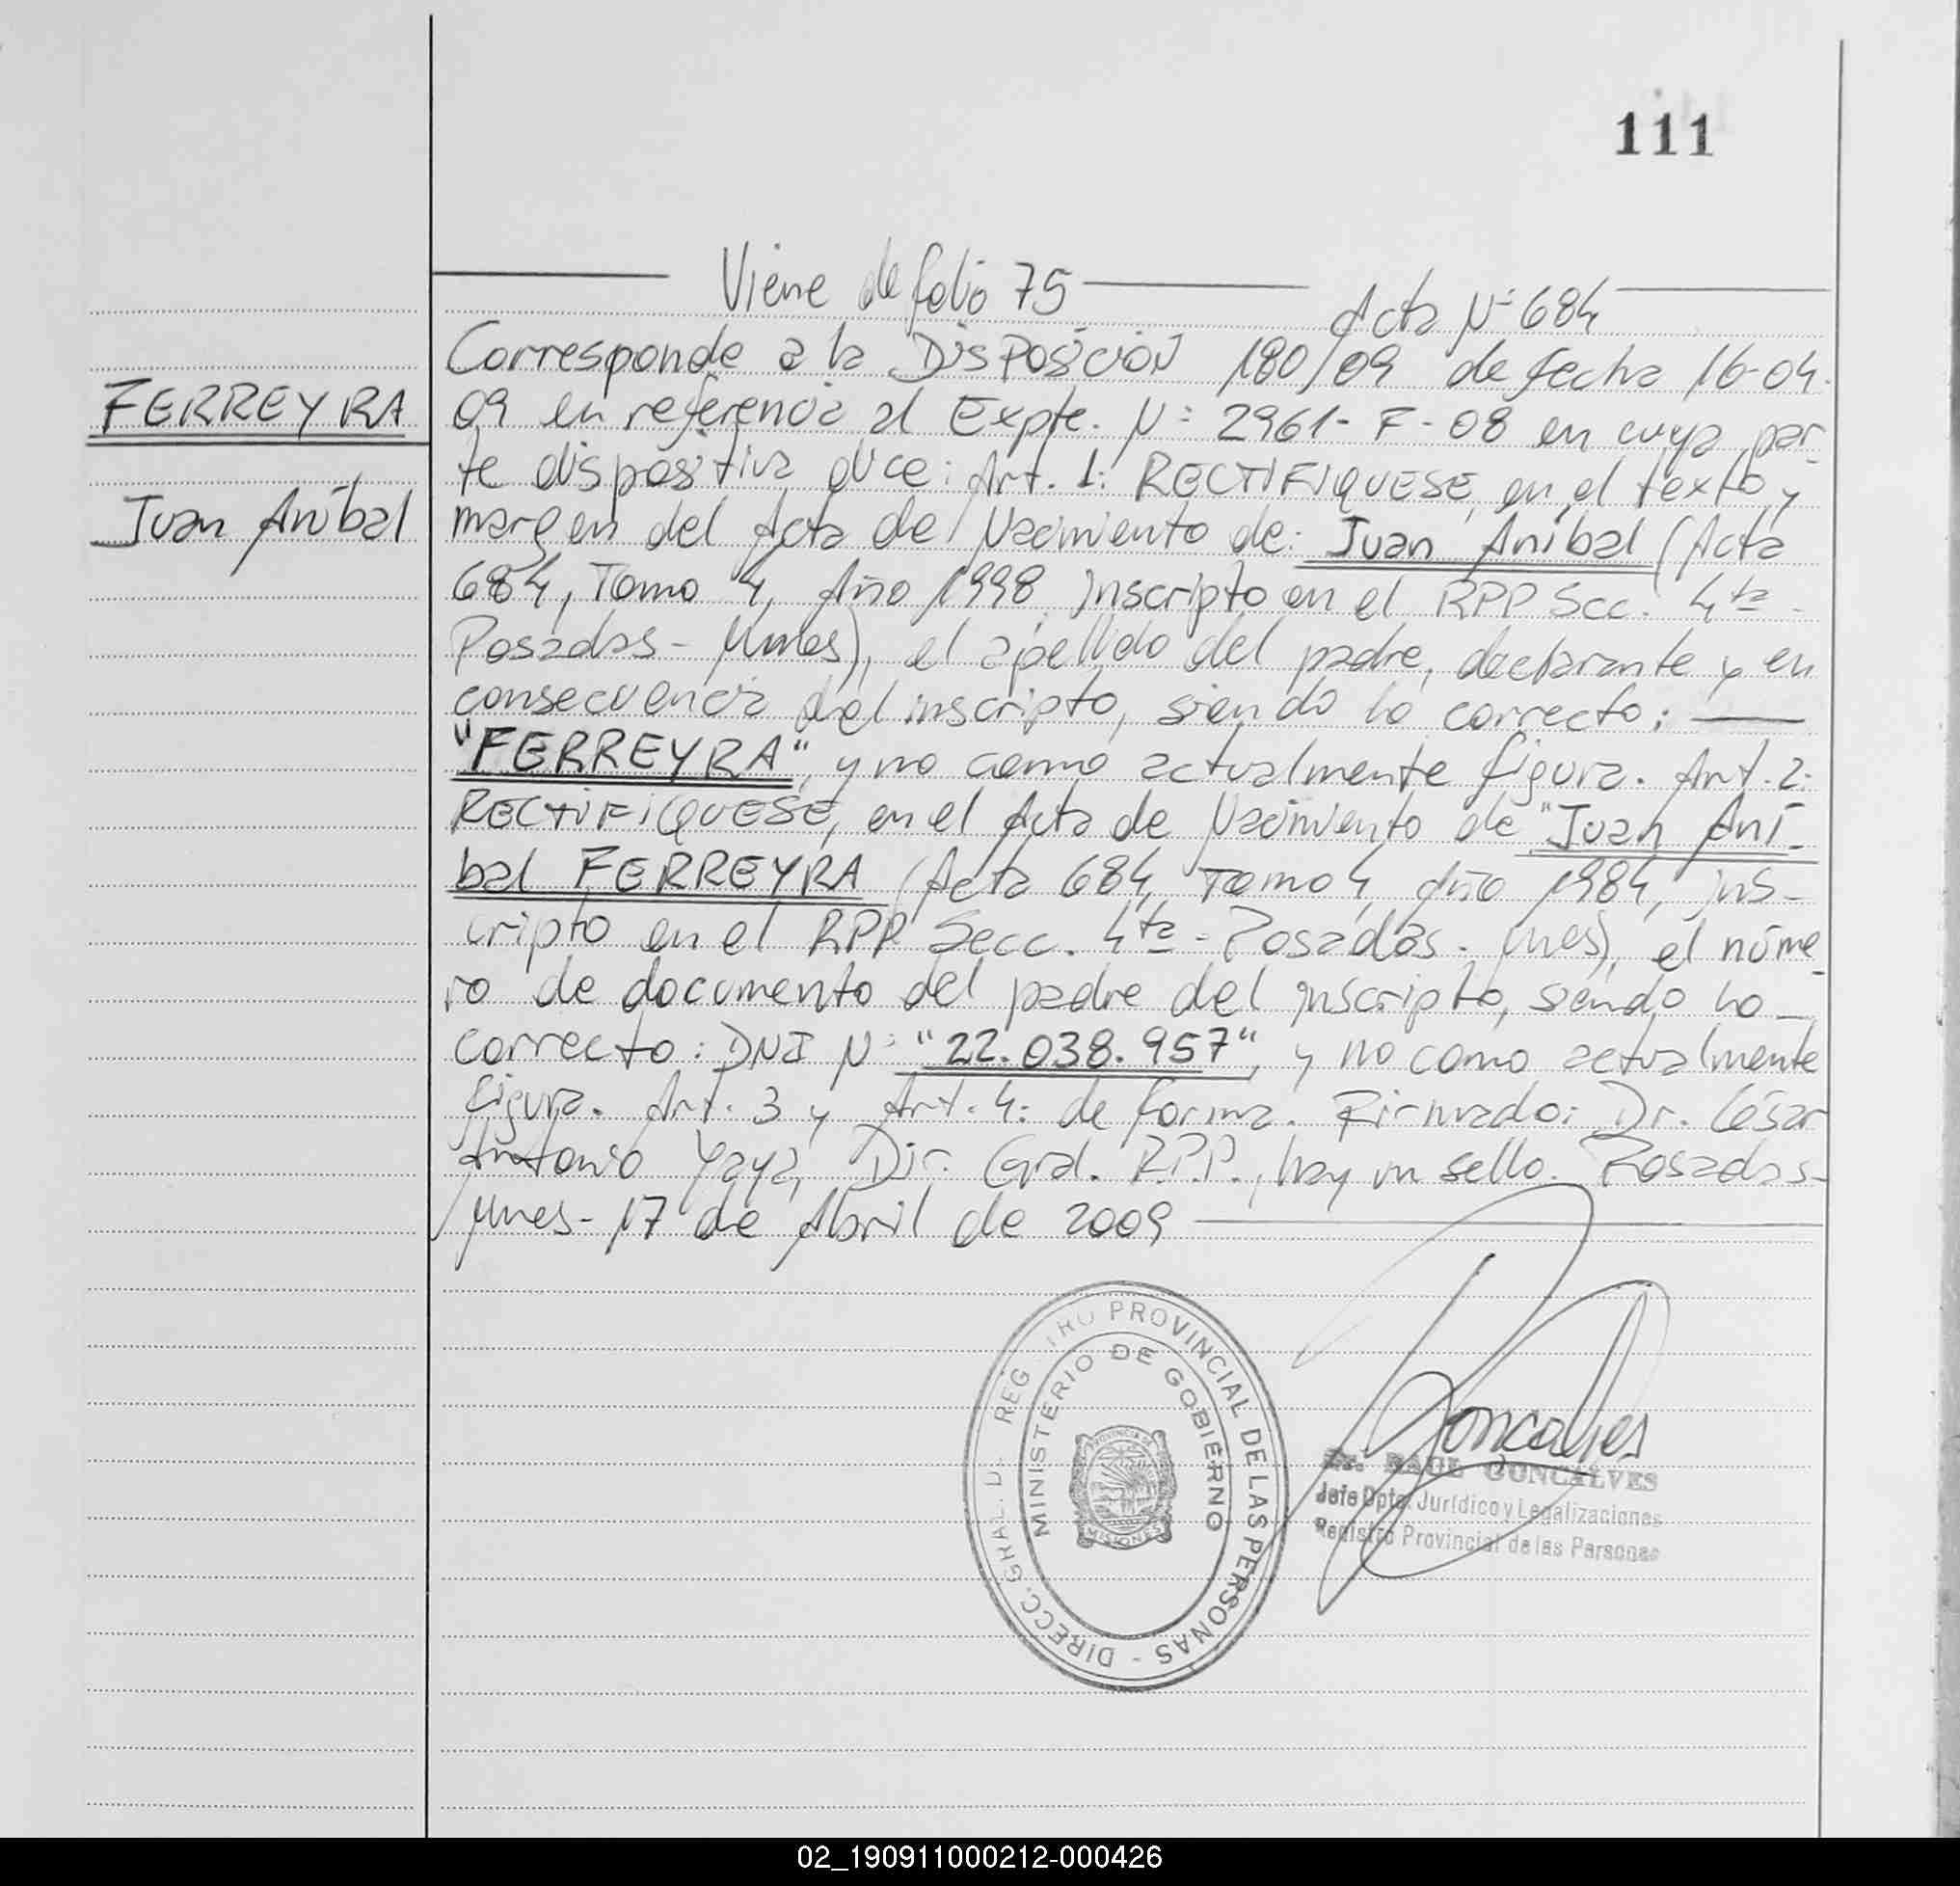 111
Viene de folio 75
Acta Nº 684
FERREYRA
Juan Aníbal
Corresponde a la DISPOSICION 180/09 de fecha 16-04-
09 en referencia al Expte. Nº 2961-F-08 en cuya par
te dispositiva dice: Art. 1: RECTIFIQUESE, en el texto y
margen del Acta de Nacimiento de: Juan Aníbal (Acta
684, Tomo 4, Año 1998. Inscripto en el RPP Scc. 4ta -
Posadas - Mnes), el apellido del padre, declarante y en
consecuencia del inscripto, siendo lo correcto:
"FERREYRA", y no como actualmente figura. Art. 2:
RECTIFIQUESE, en el Acta de Nacimiento de "Juan Aní-
bal FERREYRA (Acta 684, Tomo 4, Año 1984, ins-
cripto en el RPP Secc. 4ta - Posadas - Mnes), el núme
ro de documento del padre del inscripto, siendo lo
correcto: DNI Nº "22.038.957", y no como actualmente
figura. Art. 3 y Art. 4: de forma. Firmado: Dr. César
Antonio Yaya, Dir. Gral. R.P.P., hay un sello. Posadas-
Mnes- 17 de Abril de 2009
DIRECC. GRAL. D REG TRO PROVINCIAL DE LAS PERSONAS -
MINISTERIO DE GOBIERNO
PROVINCIA DE
MISIONES
Goncalves
Dr. RAUL GONCALVES
Jefe Dpto. Jurídico y Legalizaciones
Registro Provincial de las Personas
02_190911000212-000426